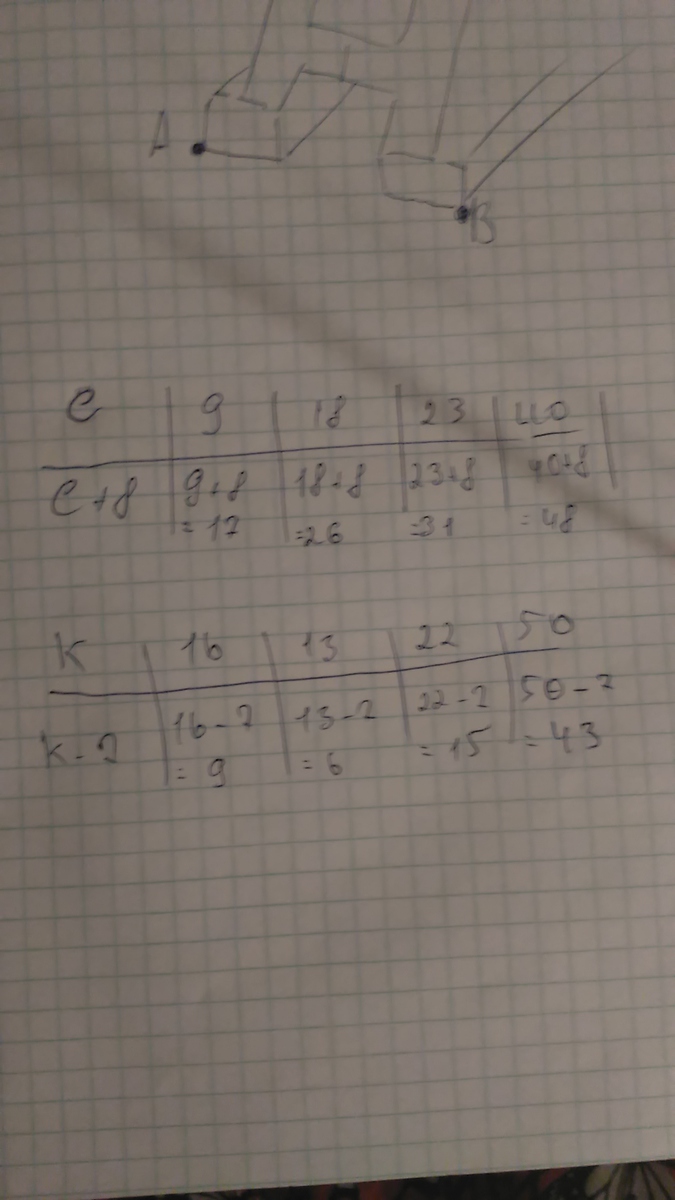 A
B
c 9 18 23 40
c+8 9+8 18+8 23+8 40+8
=17 =26 =31 =48
K 16 13 22 50
K-7 16-7 13-7 22-7 50-7
=9 =6 =15 =43